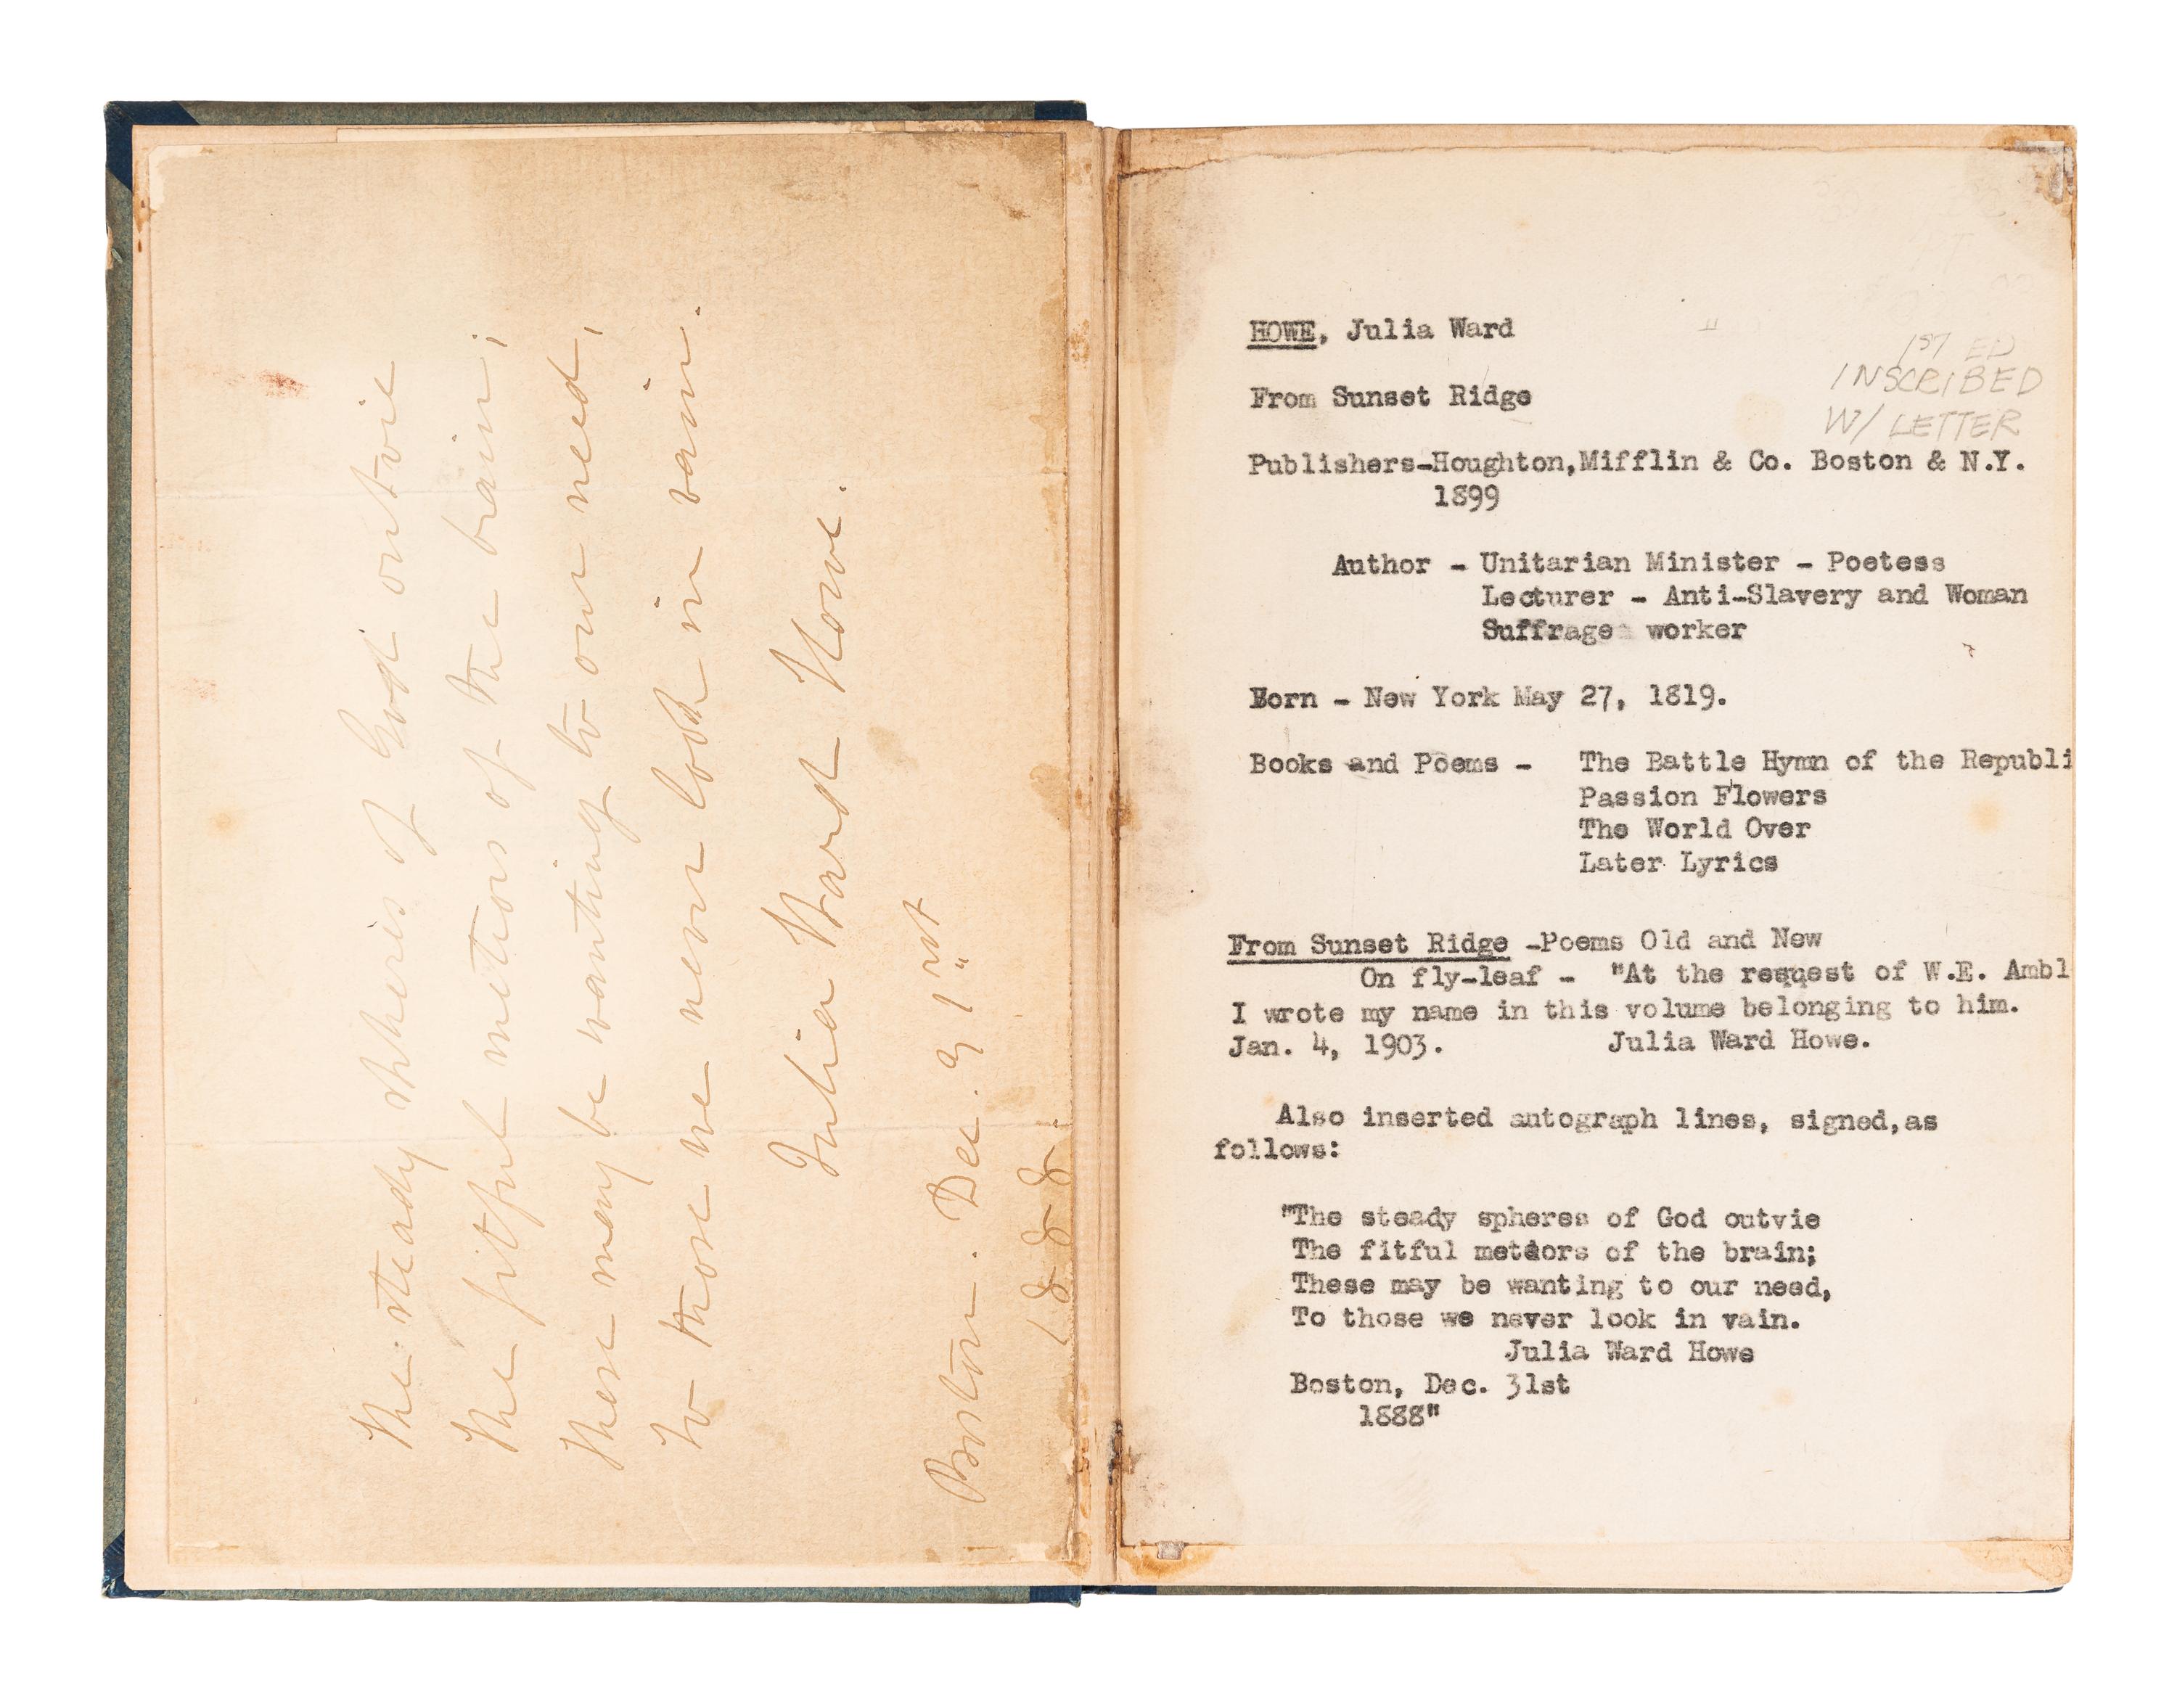 The steady spheres of God outvie
The fitful meteors of the brain;
These may be wanting to our need,
To those we never look in vain.
Julia Ward Howe.
Boston. Dec. 31st
1888.
HOWE, Julia Ward
1ST ED
INSCRIBED
W/ LETTER
From Sunset Ridge
Publishers-Houghton,Mifflin & Co. Boston & N.Y.
1899
Author - Unitarian Minister - Poetess
Lecturer - Anti-Slavery and Woman
Suffrage worker
Born - New York May 27, 1819.
Books and Poems - The Battle Hymn of the Republi
Passion Flowers
The World Over
Later Lyrics
From Sunset Ridge -Poems Old and New
On fly-leaf - "At the reqqest of W.E. Ambl
I wrote my name in this volume belonging to him.
Jan. 4, 1903. Julia Ward Howe.
Also inserted autograph lines, signed,as
follows:
"The steady spheres of God outvie
The fitful meteors of the brain;
These may be wanting to our need,
To those we never look in vain.
Julia Ward Howe
Boston, Dec. 31st
1888"